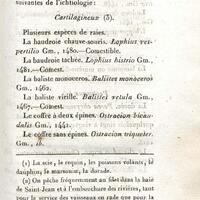 suivantes de l'ichtiologie:
Cartilagineux (3).
Plusieurs espèces de raies.
La baudroie chauve-souris. Lophius ves-
pertilio Gm., 1480.—Comestible.
La baudroie tachée. Lophius histrio Gm.,
1481.—Comest.
La baliste monoceros. Balistes monoceros
Gm., 1462.
La baliste vieille. Balistes vetula Gm.,
1467.—Comest.
Le coffre à deux épines. Ostracion bicau-
dalis Gm., 1441.
Le coffre sans épines. Ostracion triqueter.
Gm., ib.
(1) La scie, le requin, les poissons volants, le
dauphin, le marsouin, la dorade.
(2) On pêche fréquemment au filet dans la baie
de Saint-Jean et à l'embouchure des rivières, tant
pour le service des vaisseaux en rade que pour la